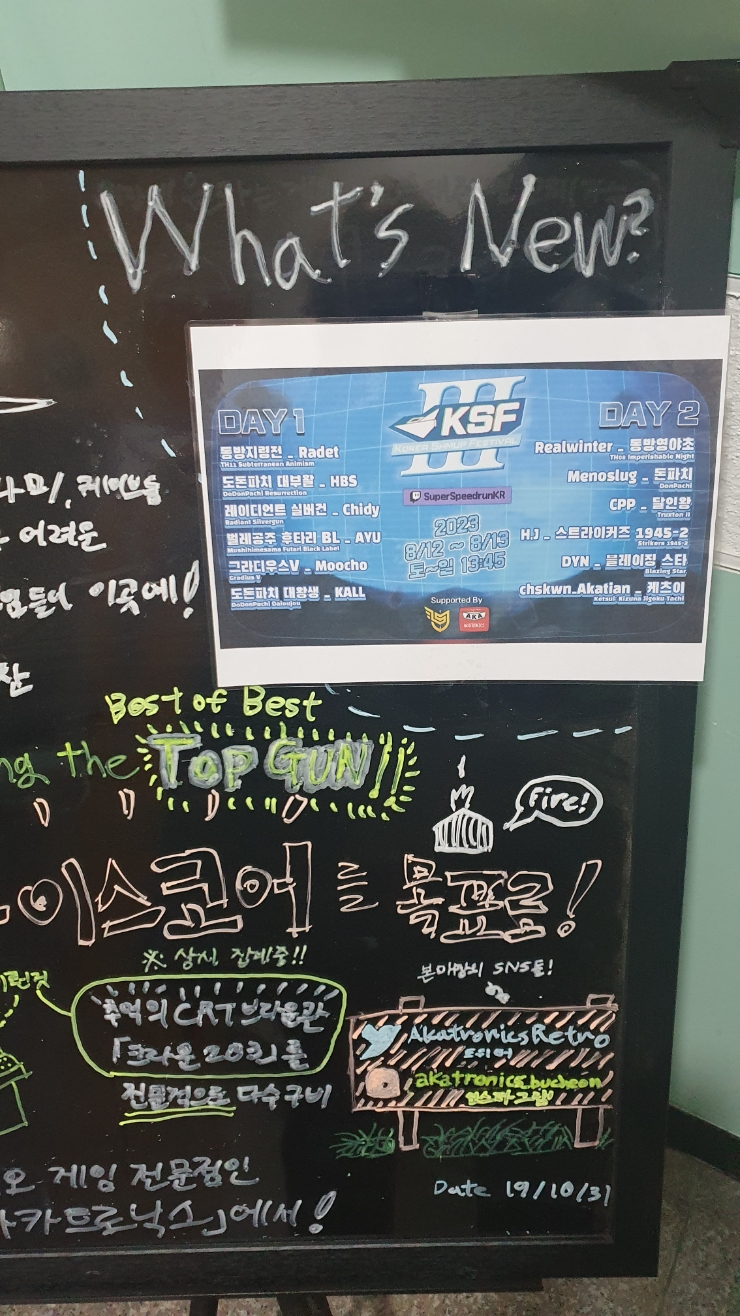 What's New?
III
KSF
KOREA SHMUP FESTIVAL
DAY 1
동방지령전 _ Radet
TH11 Subterranean Animism
도돈파치 대부활 _ HBS
DoDonPachi Resurrection
레이디언트 실버건 _ Chidy
Radiant Silvergun
벌레공주 후타리 BL _ AYU
Mushihimesama Futari Black Label
그라디우스V _ Moocho
Gradius V
도돈파치 대왕생 _ KALL
DoDonPachi Daioujou
SuperSpeedrunKR
2023
8/12 ~ 8/13
토~일 13:45
Supported By
AKA
DAY 2
Realwinter _ 동방영야초
TH08 Imperishable Night
Menoslug _ 돈파치
DonPachi
CPP _ 달인왕
Truxton II
H.J _ 스트라이커즈 1945-2
Strikers 1945-2
DYN _ 블레이징 스타
Blazing Star
chskwn_Akatian _ 케츠이
Ketsui: Kizuna Jigoku Tachi
케이브등
어려운
이곳에!
Best of Best
ng the Top GUN!!
Fire!
이스코어를 목표로!
※ 상시 집계중!!
이런것
추억의 CRT 브라운관
「크라운 20위」를
전문적으로 다수구비
본매장의 SNS들!
AkatronicsRetro
트위터
akatronics_bucheon
인스타그램
오 게임 전문점인
아카트로닉스」에서!
Date 19/10/31